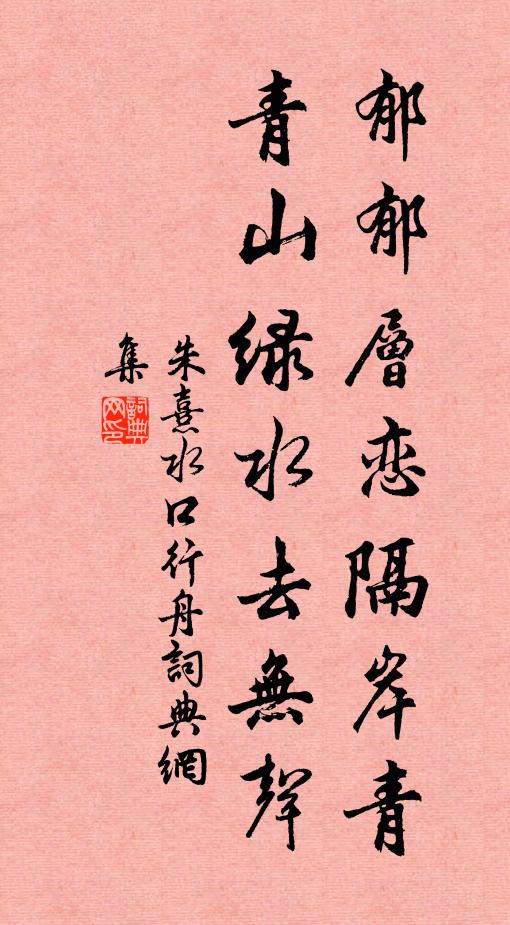 郁郁層恋隔岸青
青山緑水去無聲
朱熹水口行舟詞典網
集
詞典
网印